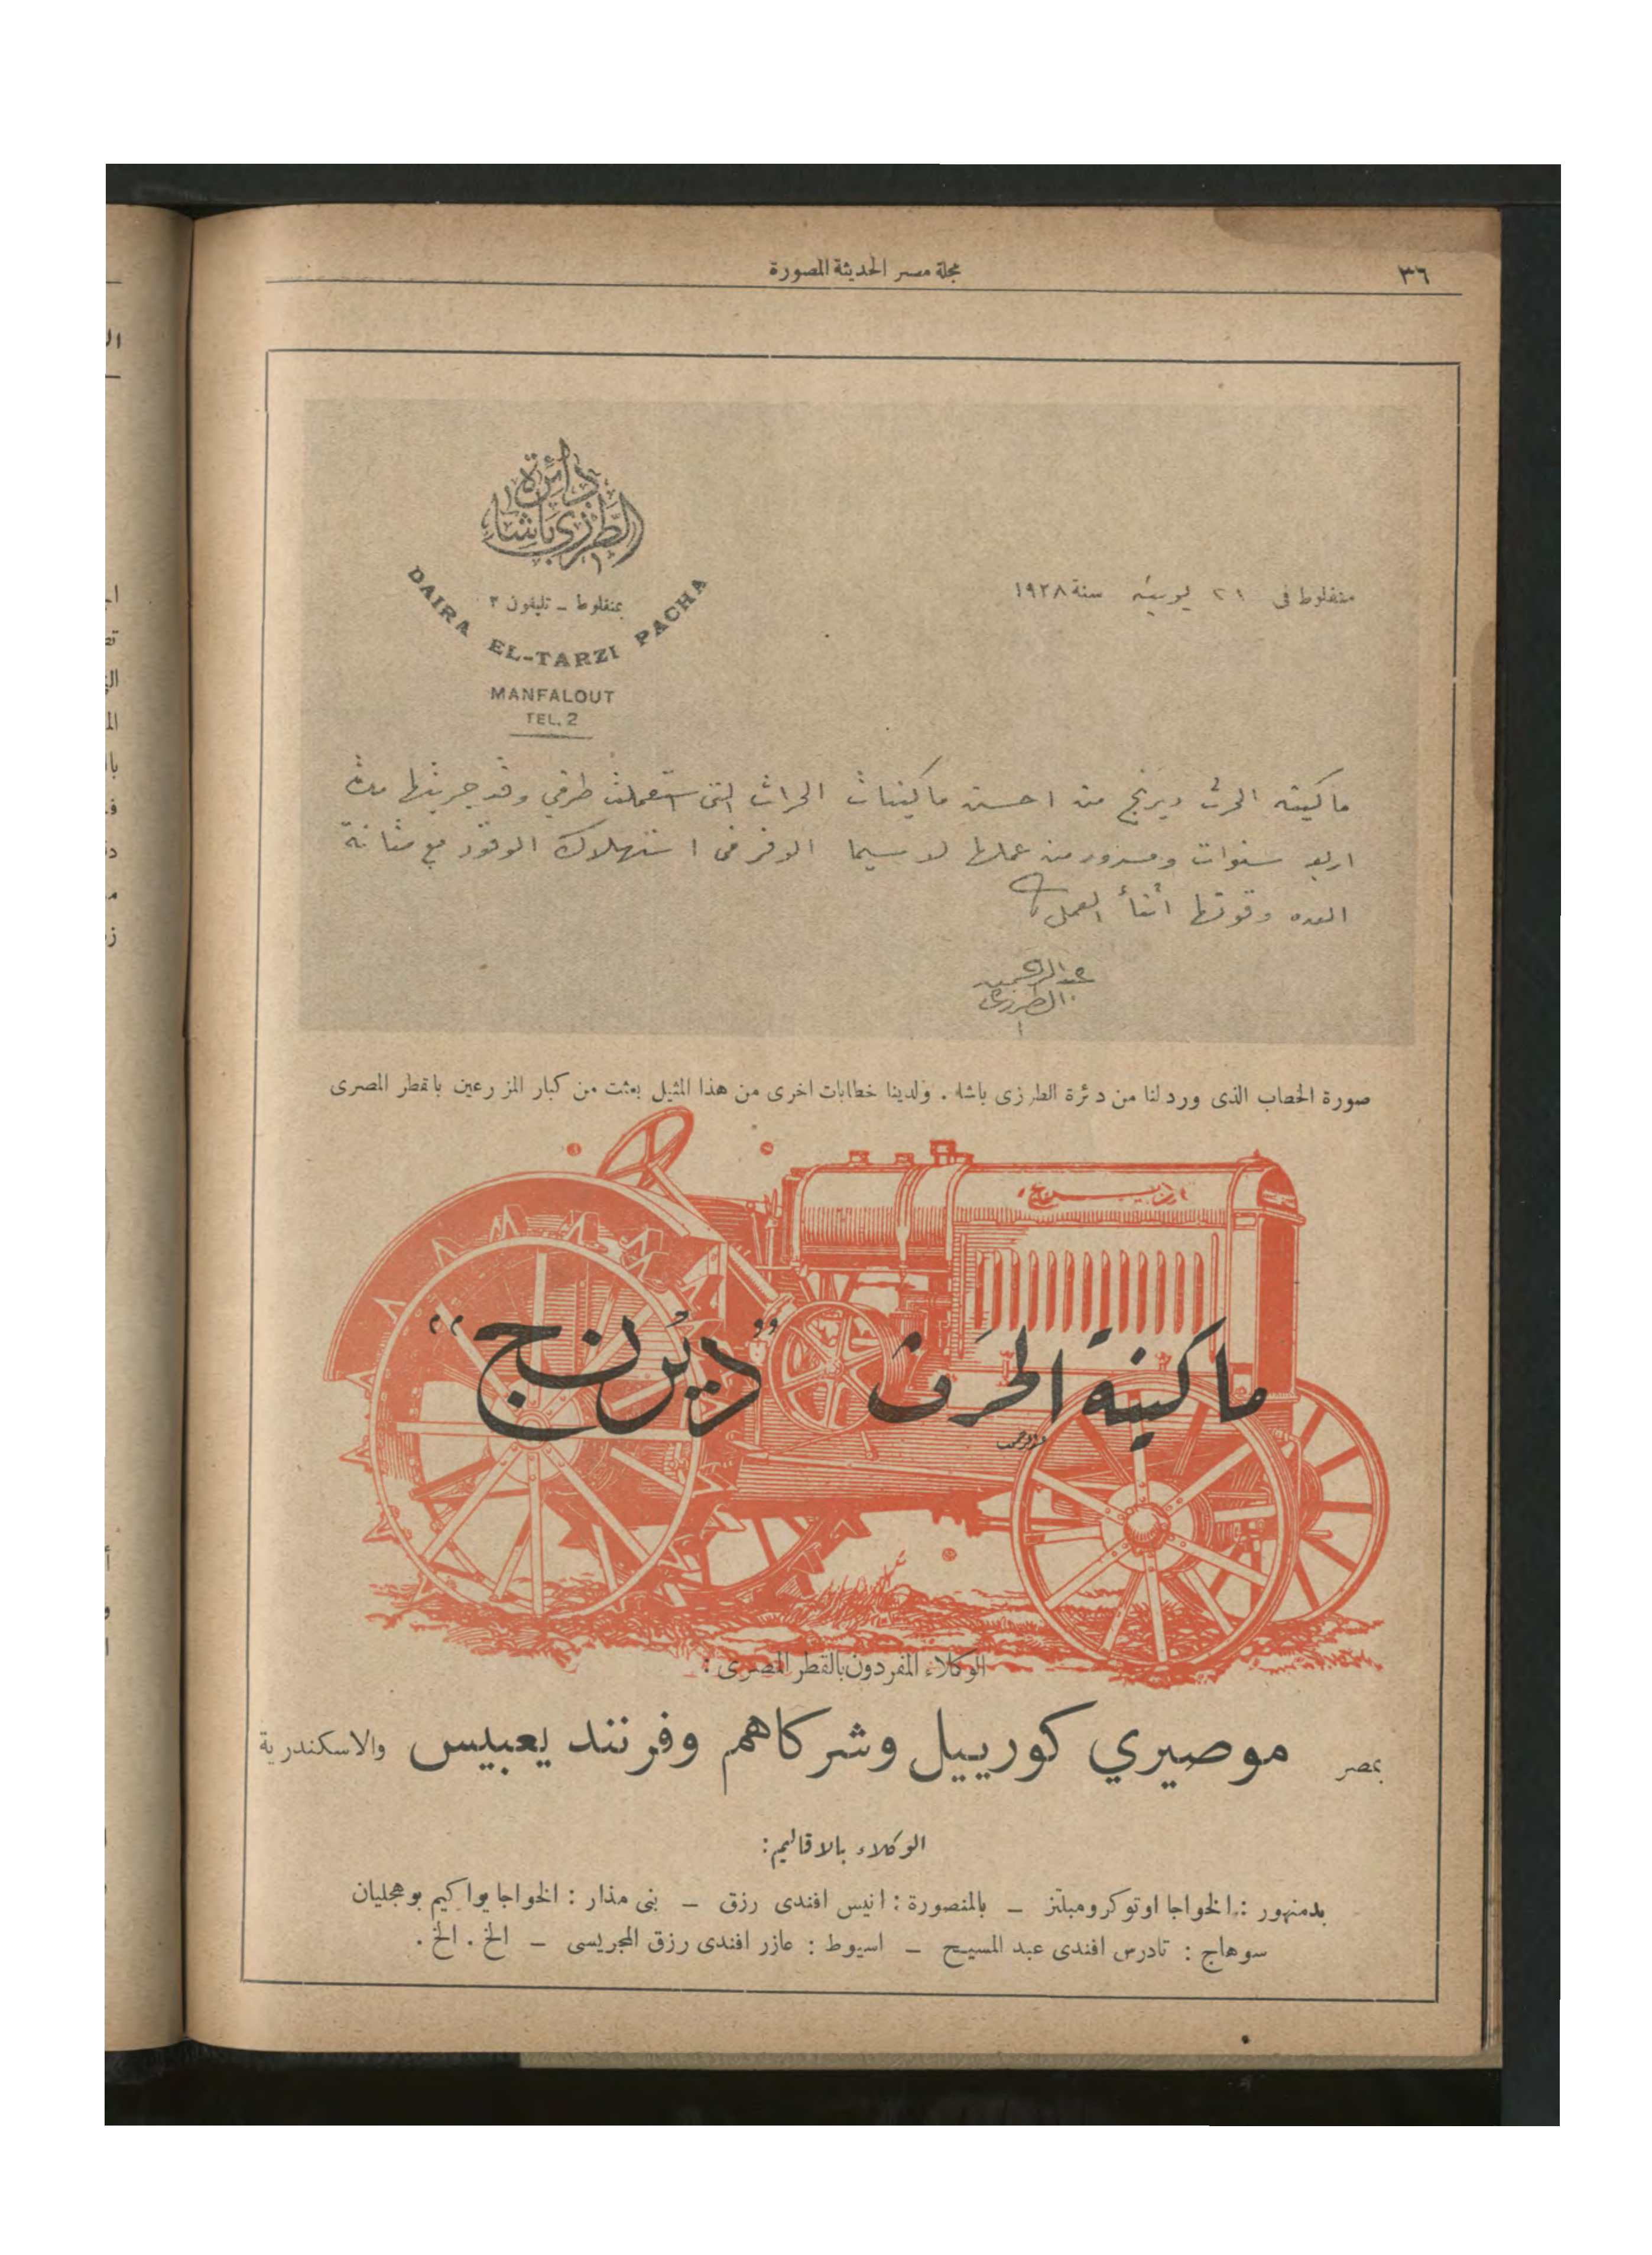 ٣٦
مجلة مصر الحديثة المصورة
دائرة
الطرزى باشا
بمنفلوط - تليفون ٢
DAIRA EL-TARZI PACHA
MANFALOUT
TEL. 2
منفلوط فى ٢١ يونيه سنة ١٩٢٨
ماكينة الحرث ديرنج من احسن ماكينات الحراث التى استعملت طرفي وقد جربتها مدة
اربع سنوات ومسرور من عملها لا سيما الوفر فى استهلاك الوقود مع متانة
العده وقوتها أثنأ العمل
عبد الرحمن
الطرزى
صورة الخطاب الذى ورد لنا من دئرة الطرزى باشا . ولدينا خطابات اخرى من هذا المثيل بعثت من كبار المزرعين بالقطر المصرى
ديرنج
ماكينة الحرث "ديرنج"
الوكلاء المفردون بالقطر المصرى :
بمصر موصيري كورييل وشركاهم وفرنند يعبيس والاسكندرية
الوكلاء بالاقاليم:
بدمنهور : الخواجا اوتوكرومبلتز - بالمنصورة : انيس افندى رزق - بنى مذار : الخواجا يواكيم بوهجليان
سوهاج : تادرس افندى عبد المسيح - اسيوط : عازر افندى رزق المجريسى - الخ . الخ .